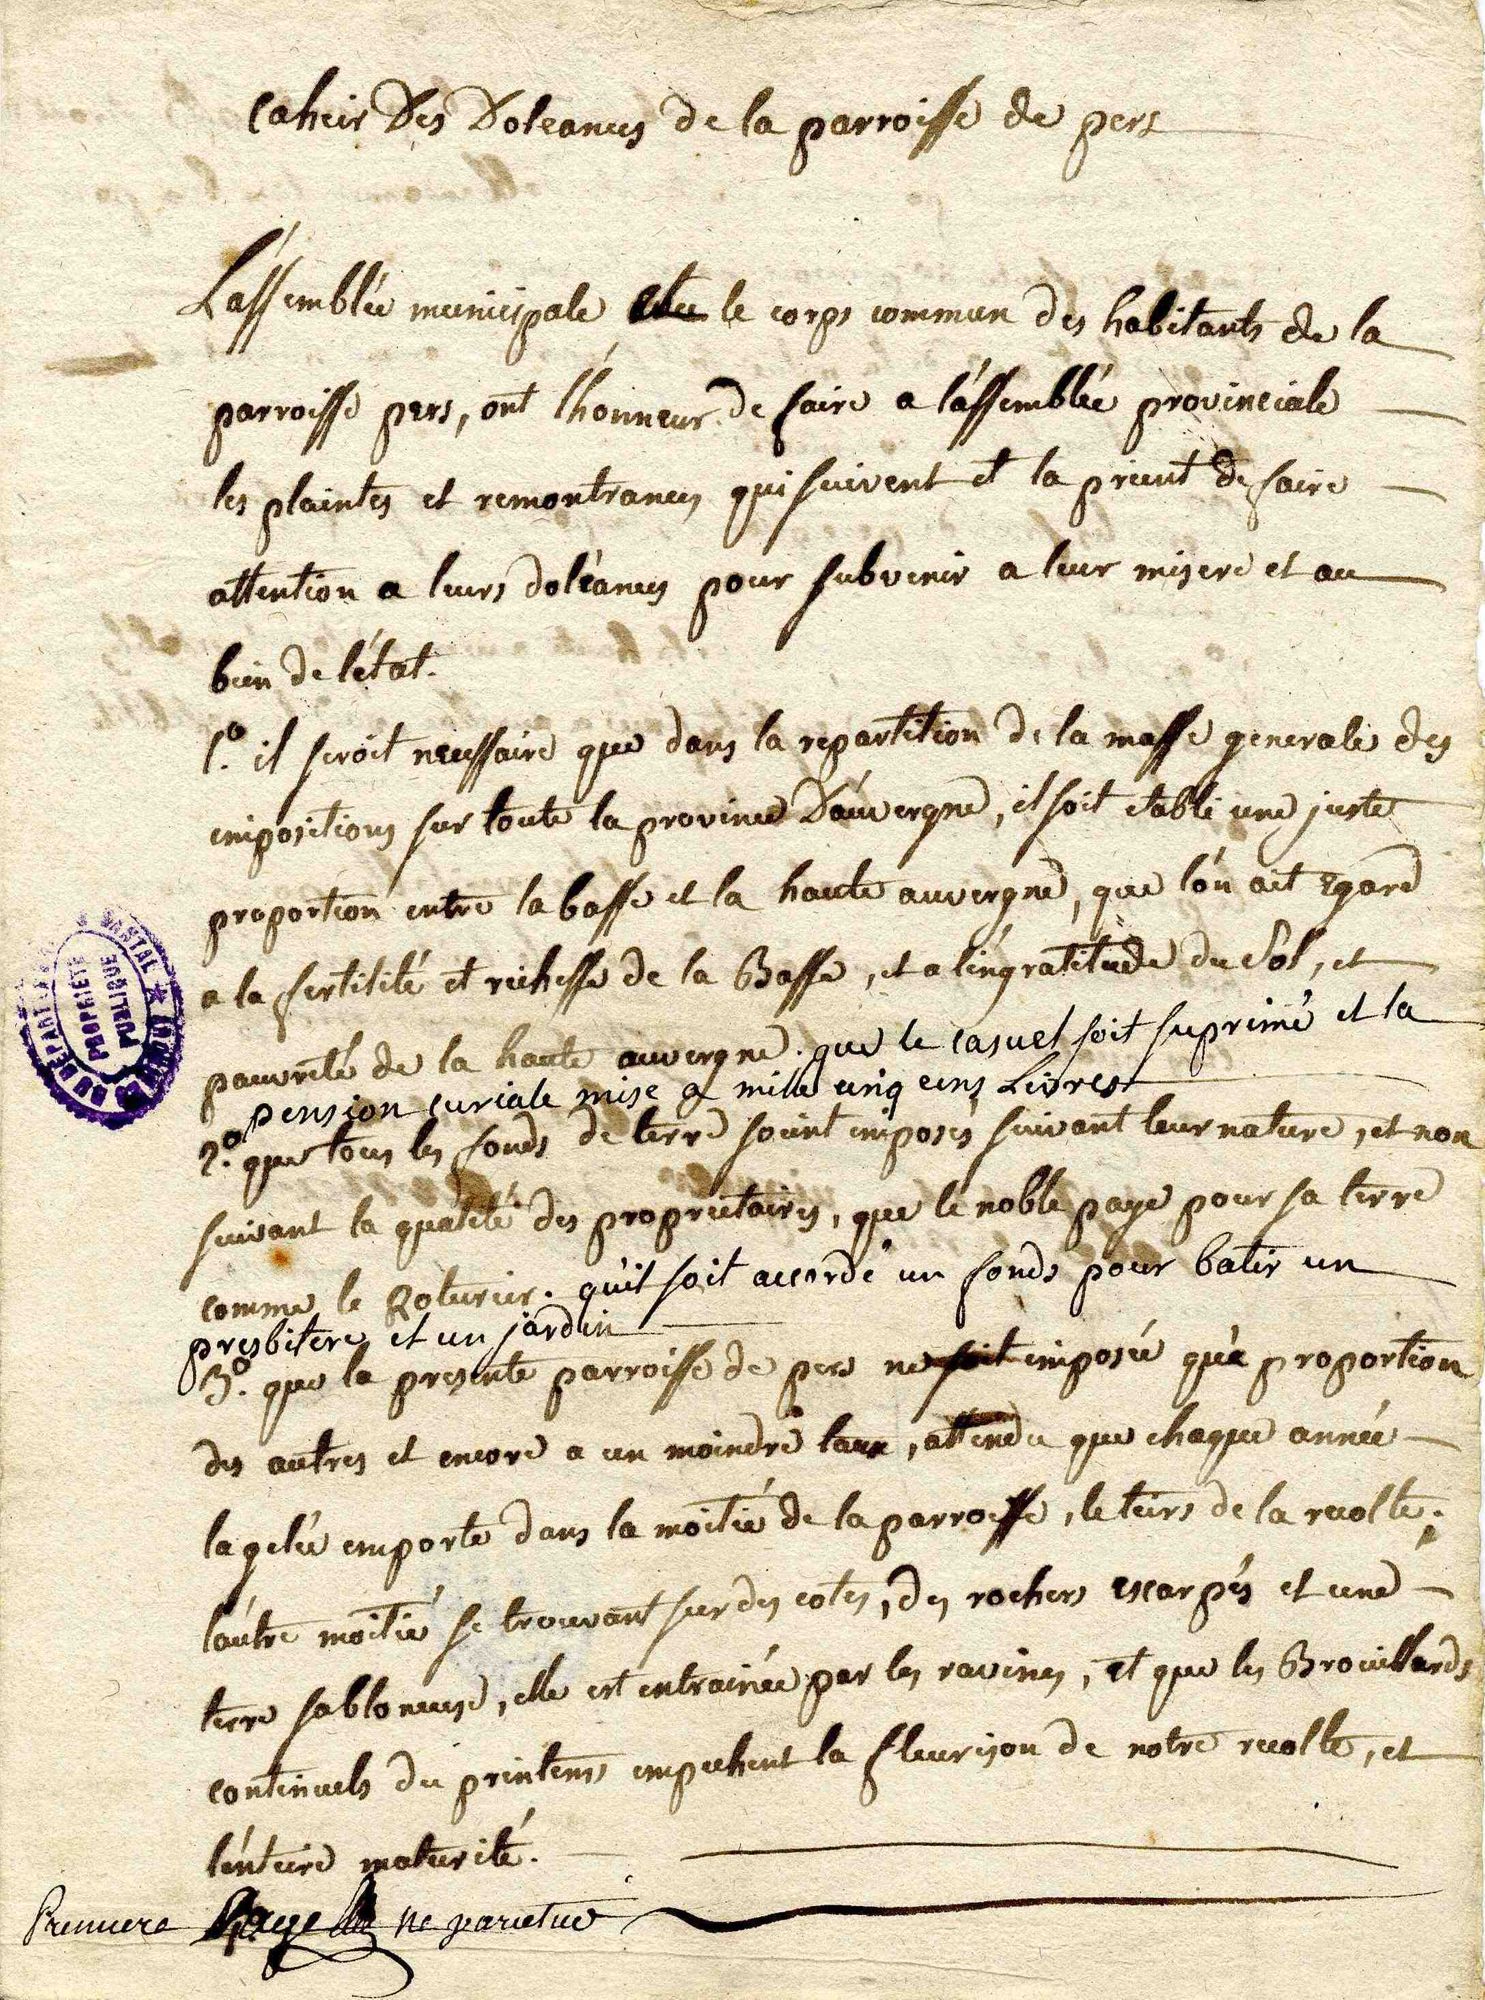 caheir Des Doleances de la parroisse de pers
L'assemblée municipale le corps commun des habitants de la
parroisse pers, ont l'honneur de faire a l'assemblée provinciale
les plaintes et remontrances qui suivent et la prient de faire
attention a leurs doléances pour subvenir a leur misere et au
bien de l'état.
1.° il seroit necessaire que dans la repartition de la masse generale des
impositions sur toute la province D'auvergne, il soit etabli une juste
proportion entre la basse et la haute auvergne, que l'on ait Egard
a la fertilité et richesse de la Basse, et a l'ingratitude du Sol, et
pauvreté de la haute auvergne. que le casuel soit suprimé et la
pension curiale mise a mille cinq cens Livres
2.° que tous les fonds de terre soient imposés suivant leur nature, et non
suivant la qualité des proprietaires, que le noble paye pour sa terre
comme le Roturier. qu'il soit accordé un fonds pour batir un
presbitere et un jardin
3.° que la presente parroisse de pers ne soit imposée qu'a proportion
des autres et encore a un moindre taux, attendu que chaque année
la gelée emporte dans la moitié de la parroisse, le teirs de la recolte;
l'autre moitié se trouvant sur des cotes, des rochers escarpés et une
terre sabloneuse, elle est entrainée par les ravines, et que les Brouillards
continuels du printems empechent la fleurison de notre recolte, et
l'enteire maturité.
Premiere Page ne varietur
PROPRIÉTÉ
PUBLIQUE
CANTAL